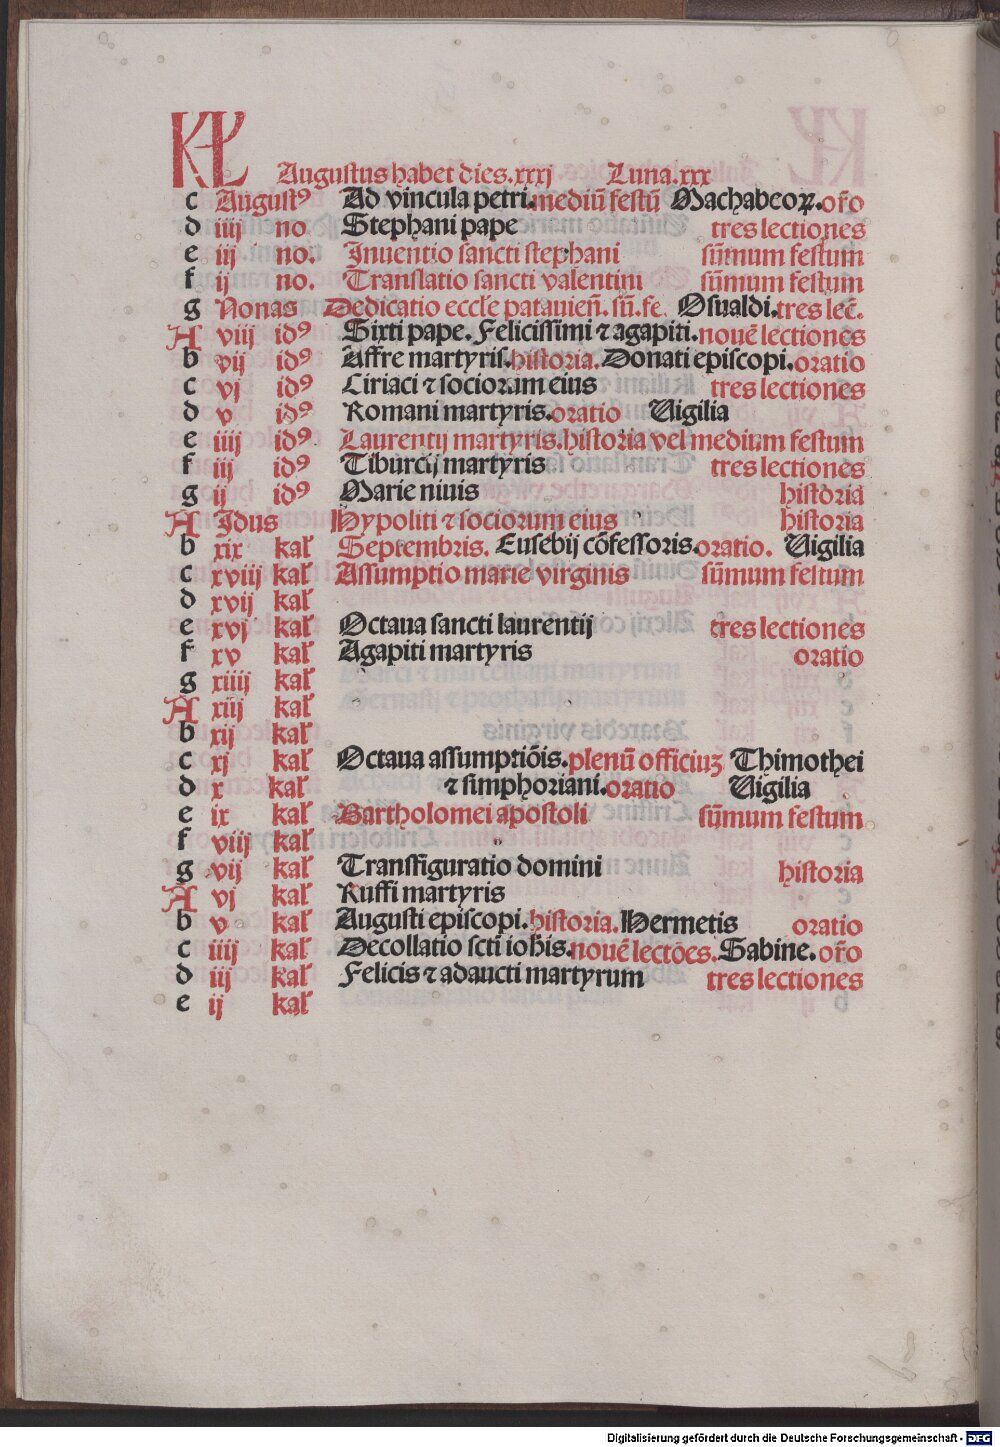 KL Augustus habet dies.xxxj Luna.xxx
c Augustꝰ Ad vincula petri.mediū festū Machabeoꝝ.or̄o
d iiij no. Stephani pape tres lectiones
e iij no. Inuentio sancti stephani sūmum festum
f ij no. Translatio sancti valentini sūmum festum
g Nonas Dedicatio eccl̄e patauien̄.sū.fe. Osualdi.tres lec̄.
A viij idꝰ Sixti pape. Felicissimi ⁊ agapiti.nouē lectiones
b vij idꝰ Affre martyris.historia.Donati episcopi.oratio
c vj idꝰ Ciriaci ⁊ sociorum eius tres lectiones
d v idꝰ Romani martyris.oratio Uigilia
e iiij idꝰ Laurentij martyris.historia vel medium festum
f iij idꝰ Tiburcij martyris tres lectiones
g ij idꝰ Marie niuis historia
A Idus Hypoliti ⁊ sociorum eius historia
b xix kal̄ Septembris. Eusebij cōfessoris.oratio. Uigilia
c xviij kal̄ Assumptio marie virginis sūmum festum
d xvij kal̄
e xvj kal̄ Octaua sancti laurentij tres lectiones
f xv kal̄ Agapiti martyris oratio
g xiiij kal̄
A xiij kal̄
b xij kal̄
c xj kal̄ Octaua assumptiōis.plenū officiuꝫ Thimothei
d x kal̄ ⁊ simphoriani.oratio Uigilia
e ix kal̄ Bartholomei apostoli sūmum festum
f viij kal̄
g vij kal̄ Transfiguratio domini historia
A vj kal̄ Ruffi martyris
b v kal̄ Augusti episcopi.historia.Hermetis oratio
c iiij kal̄ Decollatio sctī ioh̄is.nouē lectōes.Sabine.or̄o
d iij kal̄ Felicis ⁊ adaucti martyrum tres lectiones
e ij kal̄
Digitalisierung gefördert durch die Deutsche Forschungsgemeinschaft - DFG